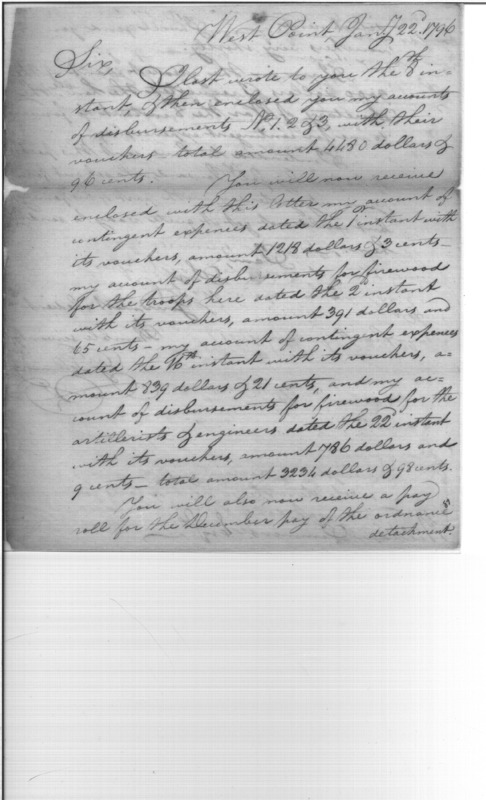 West Point, Jany 22d. 1796
Sir,
I last wrote to you the 8th in-
stant, & then enclosed you my accounts
of disbursements No. 1. 2 & 3, with their
vouchers total amount 4430 dollars &
96 cents. You will now receive
enclosed with this letter my account of
contingent expences dated the 1st instant with
its vouchers, amount 1218 dollars & 3 cents—
my account of disbursements for firewood
for the troops here dated the 2d instant
with its vouchers, amount 391 dollars and
65 cents— my account of contingent expences
dated the 16th instant with its vouchers, a=
mount 839 dollars & 21 cents, and my ac=
count of disbursements for firewood for the
artillerists & engineers dated the 22 instant
with its vouchers, amount 786 dollars and
9 cents— total amount 3234 dollars & 98 cents.
You will also now receive a pay
roll for the December pay of the ordnance
detachment.